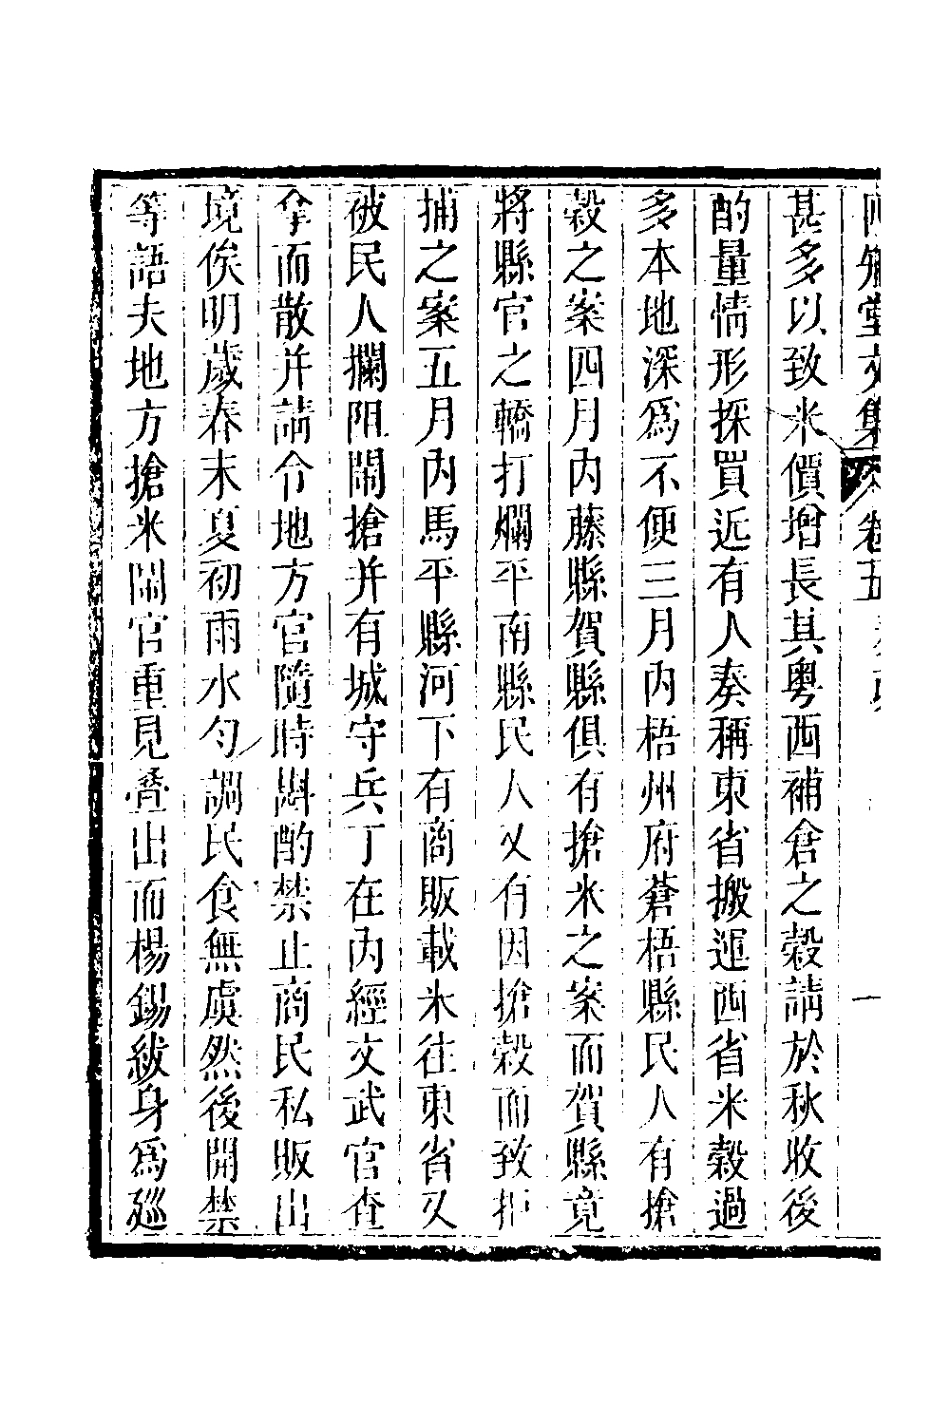 四知堂文集 卷五
甚多以致米價增長其粵西補倉之穀請於秋收後
酌量情形採買近有人奏稱東省搬運西省米穀過
多本地深爲不便三月內梧州府蒼梧縣民人有搶
穀之案四月內藤縣賀縣俱有搶米之案而賀縣竟
將縣官之轎打爛平南縣民人又有因搶穀而致拒
捕之案五月內馬平縣河下有商販載米往東省又
被民人攔阻鬧搶并有城守兵丁在內經文武官查
拿而散并請令地方官隨時斟酌禁止商民私販出
境俟明歲春末夏初雨水勻調民食無虞然後開禁
等語夫地方搶米鬧官重見疊出而楊錫紱身爲廵